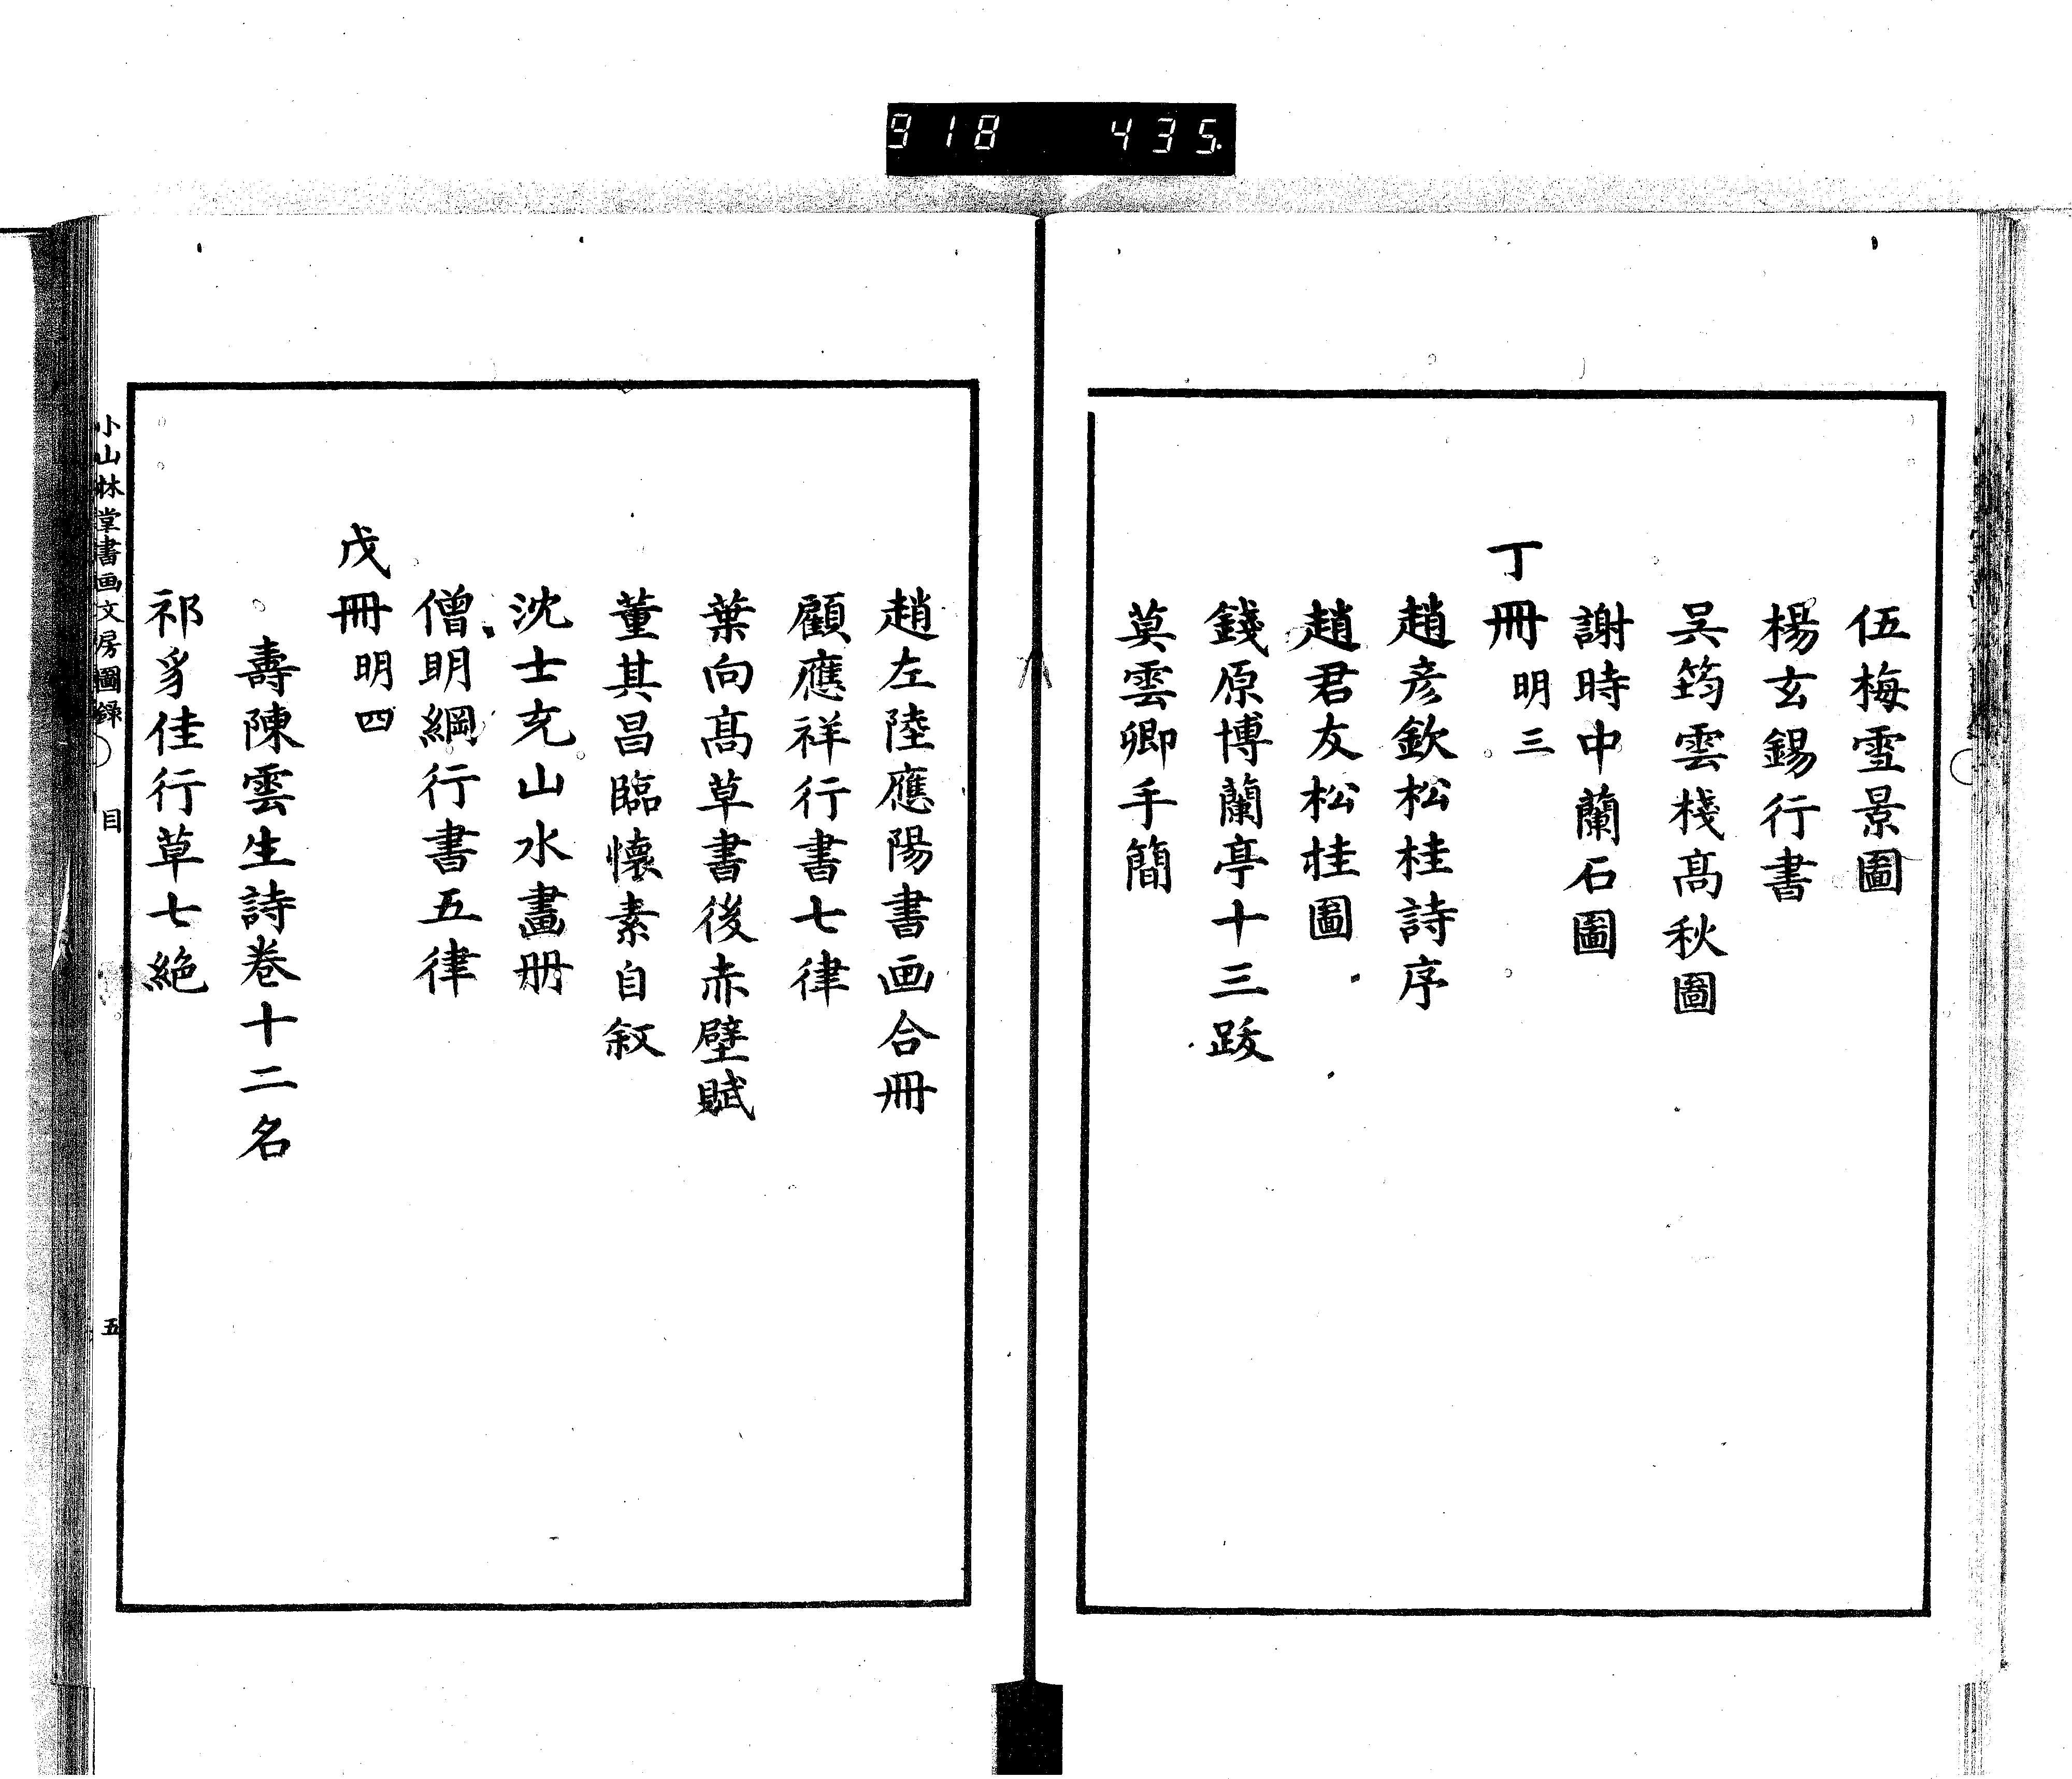 918 435.
伍梅雪景圖
楊玄錫行書
吳筠雲棧髙秋圖
謝時中蘭石圖
丁冊 明三
趙彦欽松桂詩序
趙君友松桂圖
錢原博蘭亭十三跋
莫雲卿手簡
趙左陸應陽書画合冊
顧應祥行書七律
葉向髙草書後赤壁賦
董其昌臨懷素自叙
沈士充山水畫册
僧明綱行書五律
戊冊 明四
壽陳雲生詩卷十二名
祁豸佳行草七絶
小山林堂書画文房圖録 目 五